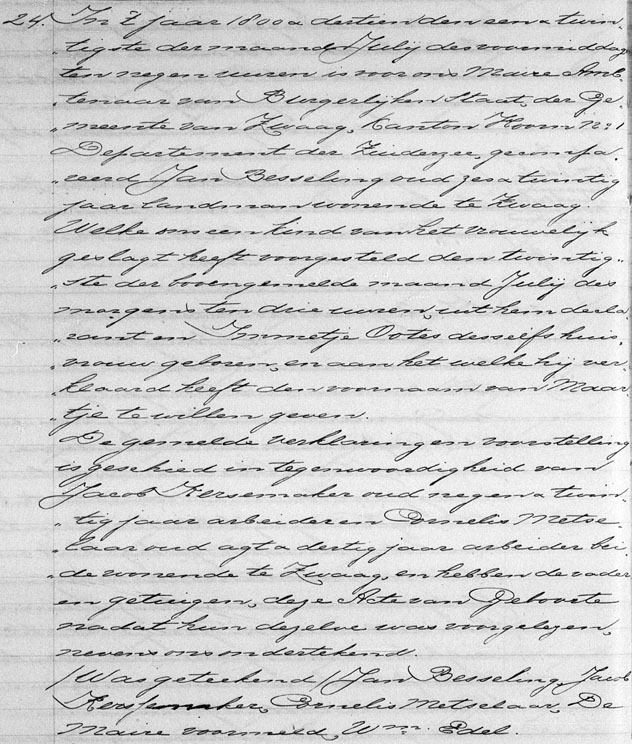 24. In 't jaar 1800 a dertien den een a twin-
„tigste der maand July des voormiddags
ten negen uuren is voor ons Maire Amb-
„tenaar van Burgerlijken Staat, der Ge-
„meente van Zwaag, Canton Hoorn No 1
Departement der Zuiderzee, gecompa-
„reerd Jan Besseling oud zes a twintig
jaar landman wonende te Zwaag.
Welke ons een kind van het vrouwelijk
geslagt heeft voorgesteld den twintig-
„ste der bovengemelde maand July des
morgens ten drie uuren, uit hem decla-
„rant en Immetje Ootes desselfs huis,
„vrouw geboren, en aan het welke hij ver-
„klaard heeft den voornaam van Maar-
„tje te willen geven.
De gemelde verklaring en voorstelling
is geschied in tegenwoordigheid van
Jacob Kersemaker oud negen a twin-
„tig jaar arbeider en Cornelis Metse-
„laar oud agt a dertig jaar arbeider bei-
„de wonende te Zwaag, en hebben de vader
en getuigen, deze Acte van Geboorte
nadat hun dezelve was voorgelezen,
nevens ons ondertekend.
/Was geteekend/ Jan Besseling, Jacob
Kerssemaker, Cornelis Metselaar, De
Maire voormeld, Wm. Edel.